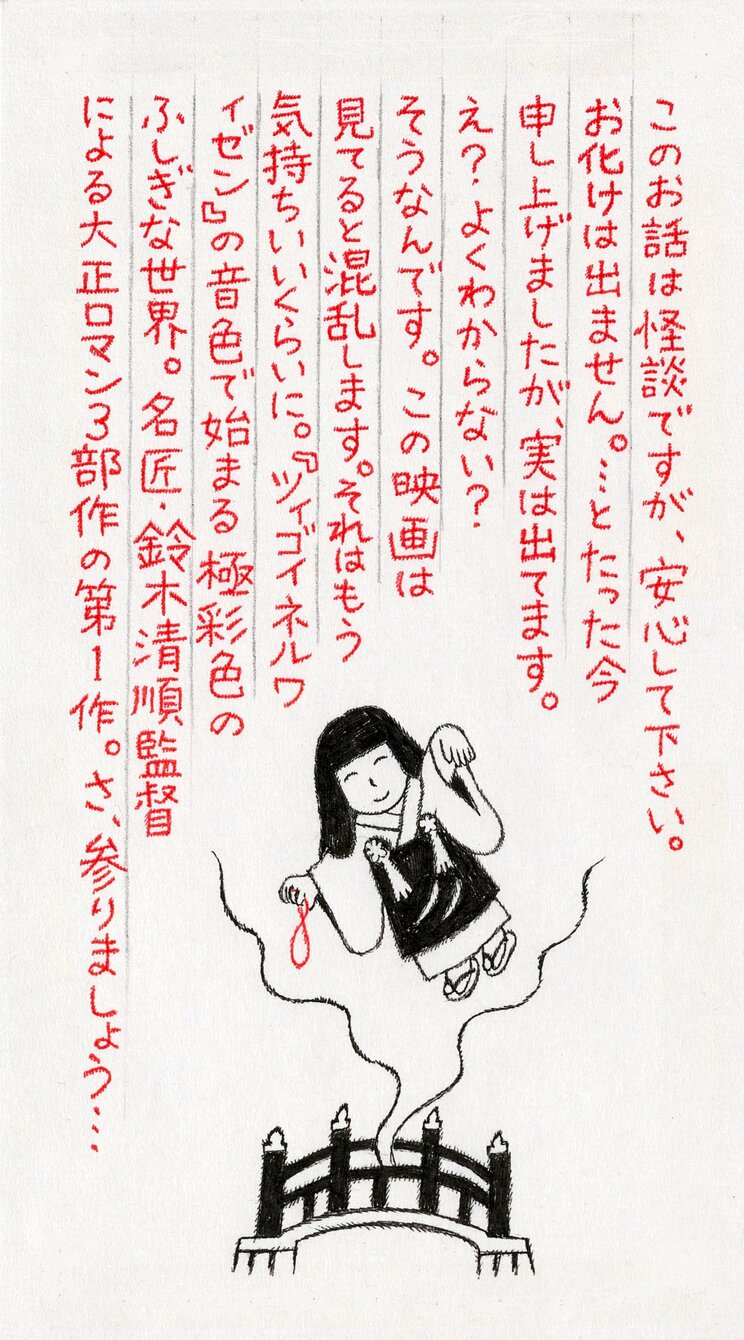 このお話は怪談ですが、安心して下さい。
お化けは出ません。…とたった今
申し上げましたが、実は出てます。
え？よくわからない？
そうなんです。この映画は
見てると混乱します。それはもう
気持ちいいくらいに。『ツィゴイネルワ
イゼン』の音色で始まる極彩色の
ふしぎな世界。名匠・鈴木清順監督
による大正ロマン3部作の第1作。さ、参りましょう…